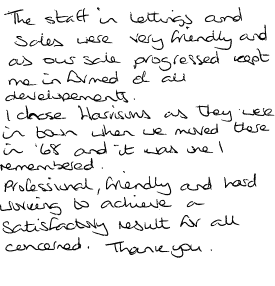 The staff in lettings and
Sales were very friendly and
as our sale progressed kept
me informed of all
developements.
I chose Harrisons as they were
in town when we moved there
in '68 and it was one I
remembered.
Professional, friendly and hard
working to achieve a
satisfactory result for all
concerned. Thank you.